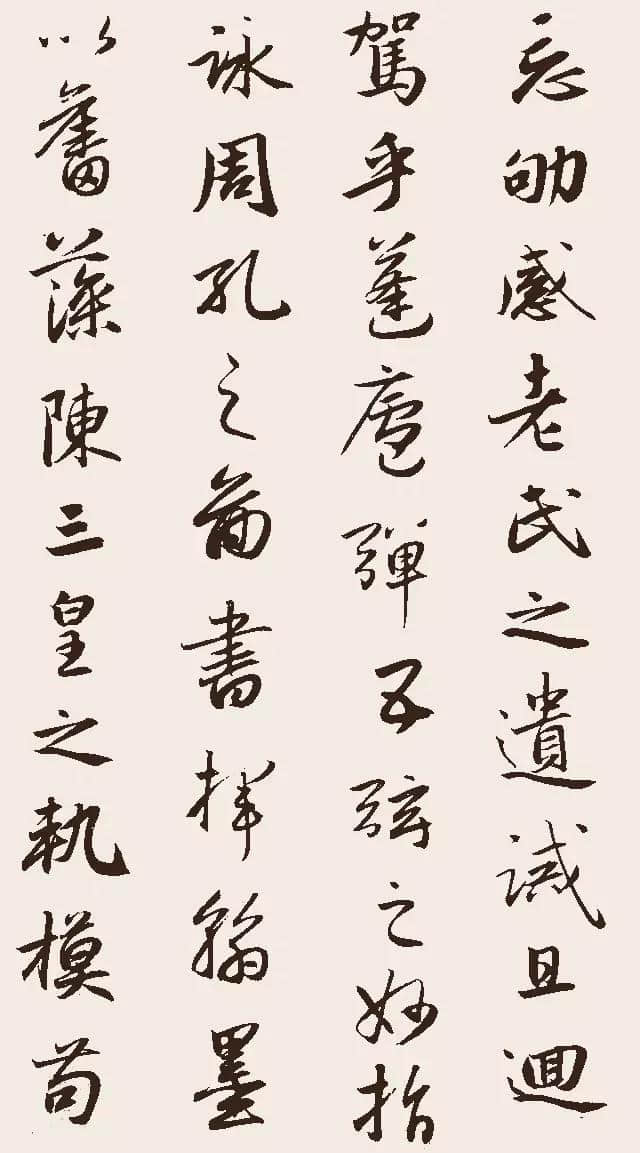 忘劬感老氏之遺誡且迴
駕乎蓬廬彈五弦之妙指
詠周孔之圖書揮翰墨
以奮藻陳三皇之軌模苟